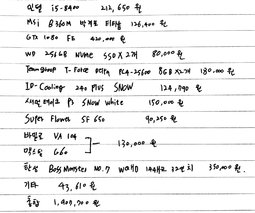 인텔 i5-8400 212,650 원
MSi B360M 박격포 티타늄 126,400 원
GTX 1080 FE 420,000 원
WD 256GB NVMe SSD X 2개 80,000 원
Teamgroup T-Force Delta PC4-25600 8GB X2개 180,000 원
ID-Cooling 240 Plus SNOW 124,790 원
P3 Snow White 150,000 원
Super Flower SF 650 90,250 원
VA 104
G60
130,000 원
한성 Boss Monster NO.7 WQHD 144Hz 32인치 350,000 원
기타 43,610 원
총합 1,907,700 원